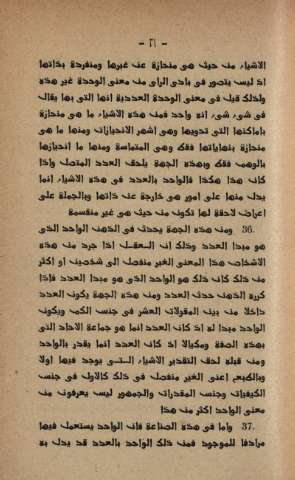 — ٢١ —
الاشياء من حيث هى منحازة عن غيرها ومنفردة بذاتها
اذ ليس يتصور فى بادى الراى من معنى الوحدة غير هذه
ولذلك قيل فى معنى الوحدة العددية انها التى بها يقال
فى شىء شىء انه واحد فمن هذه الاشياء ما هى منحازة
باماكنها التى تحويها وهى اشهر الانحيازات ومنها ما هى
منحازة بنهاياتها فقط وهى المتماسة ومنها ما انحيازها
بالوهم فقط وبهذه الجهة يلحق العدد المتصل واذا
كان هذا هكذا فالواحد بالعدد فى هذه الاشياء انما
يدل منها على امور هى خارجة عن ذاتها وبالجملة على
اعراض لاحقة لها تكون من حيث هى غير منقسمة
36. ومن هذه الجهة يحدث فى الذهن الواحد الذى
هو مبدا العدد وذلك ان العقل اذا جرد من هذه
الاشخاص هذا المعنى الغير منفصل الى شخصين او اكثر
من ذلك كان ذلك هو الواحد الذى هو مبدا العدد فاذا
كرره الذهن حدث العدد ومن هذه الجهة يكون العدد
داخلا من بين المقولات العشر فى جنس الكم ويكون
الواحد مبدا له اذ كان العدد انما هو جماعة الاحاد التى
بهذه الصفة ومكيالا اذ كان العدد انما يقدر بالواحد
ومن قبله لحق التقدير الاشياء التى يوجد فيها اولا
وبالطبع اعنى الغير منفصل فى ذلك كالاول فى جنس
الكيفيات وجنس المقدرات والجمهور ليس يعرفون من
معنى الواحد اكثر من هذا
37. واما فى هذه الصناعة فان الواحد يستعمل فيها
مرادفا للموجود فمن ذلك الواحد بالعدد قد يدل به